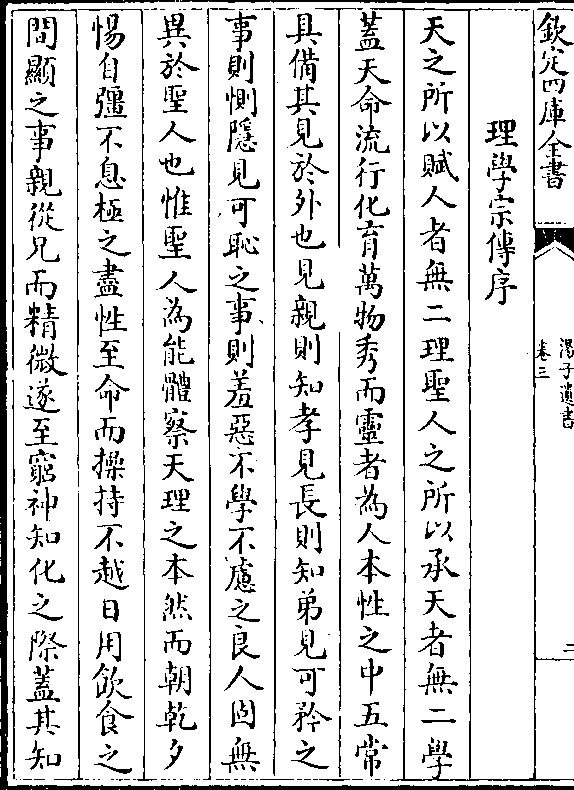 欽定四庫全書
湯子遺書
卷三
二
理學宗傳序
天之所以賦人者無二理聖人之所以承天者無二學
蓋天命流行化育萬物秀而靈者為人本性之中五常
具備其見於外也見親則知孝見長則知弟見可矜之
事則惻隱見可恥之事則羞惡不學不慮之良人固無
異於聖人也惟聖人為能體察天理之本然而朝乾夕
惕自彊不息極之盡性至命而操持不越日用飲食之
間顯之事親從兄而精微遂至窮神知化之際蓋其知